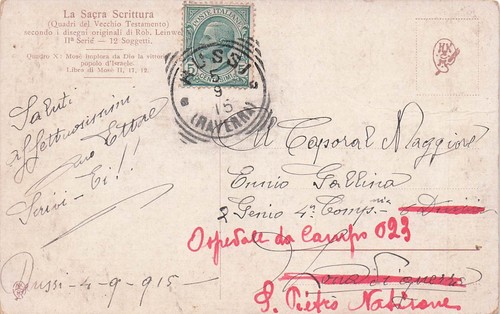 La Sacra Scrittura
(Quadri del Vecchio Testamento)
secondo i disegni originali di Rob. Leinwe
IIª Serie — 12 Soggetti.
Quadro X: Mosè implora da Dio la vittoria
popolo d'Israele.
Libro di Mosè II, 17, 12.
POSTE ITALIANE
5 CENTESIMI 5
RUSSI
9
15
(RAVENNA)
Saluti
affettuosissimi
tuo Ettore
Scrivi-Ci!!
Russi-4-9-915-
Al Caporal Maggiore
Ennio Gallina
2 Genio 4ª Comp.nia
Ospedale da Campo 023
Zona di guerra
S. Pietro Natisone